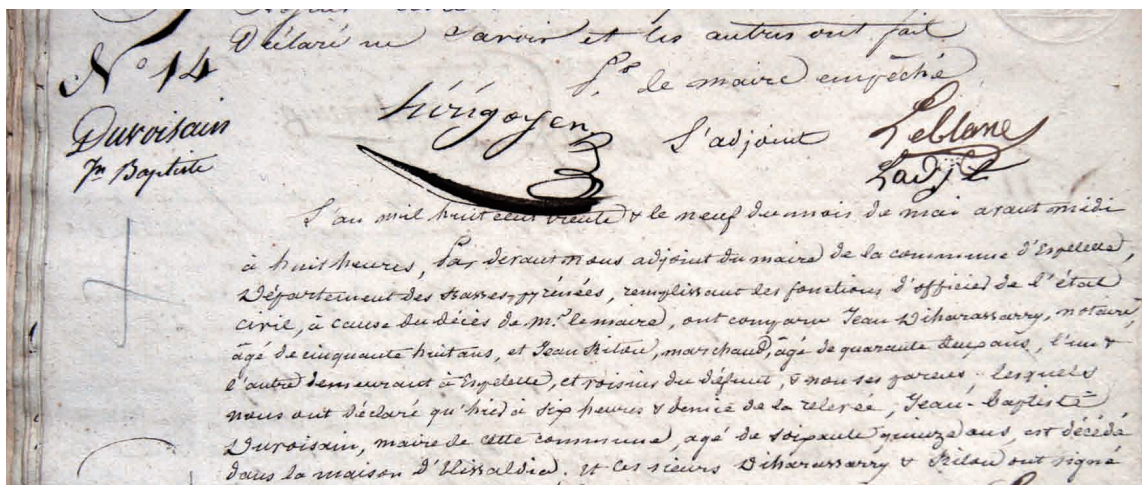 Déclaré ne savoir et les autres ont fait
Nº 14
Pr. le maire empêché
hirigoyen
L'adjoint
Leblanc
L'adjt
Duvoisain
Jn Baptiste
L'an mil huit cent trente & le neuf du mois de mai avant midi
à huit heures, Par devant nous adjoint du maire de la commune d'Espelette,
Département des Basses-pyrénées, remplissant les fonctions d'officier de l'état
civil, à cause du décès de mr. le maire, ont comparu Jean Diharassarry, notaire,
âgé de cinquante huit ans, et Jean Kilou, marchand, âgé de quarante deux ans, l'un &
l'autre demeurant à Espelette, et voisins du défunt, & non ses parens, lesquels
nous ont déclaré qu'hier à six heures & demie de la relevée, Jean-Baptiste
Duvoisain, maire de cette commune, agé de soixante quinze ans, est décédé
dans la maison d'Elissaldia. et les sieurs Diharassarry & Kilou ont signé